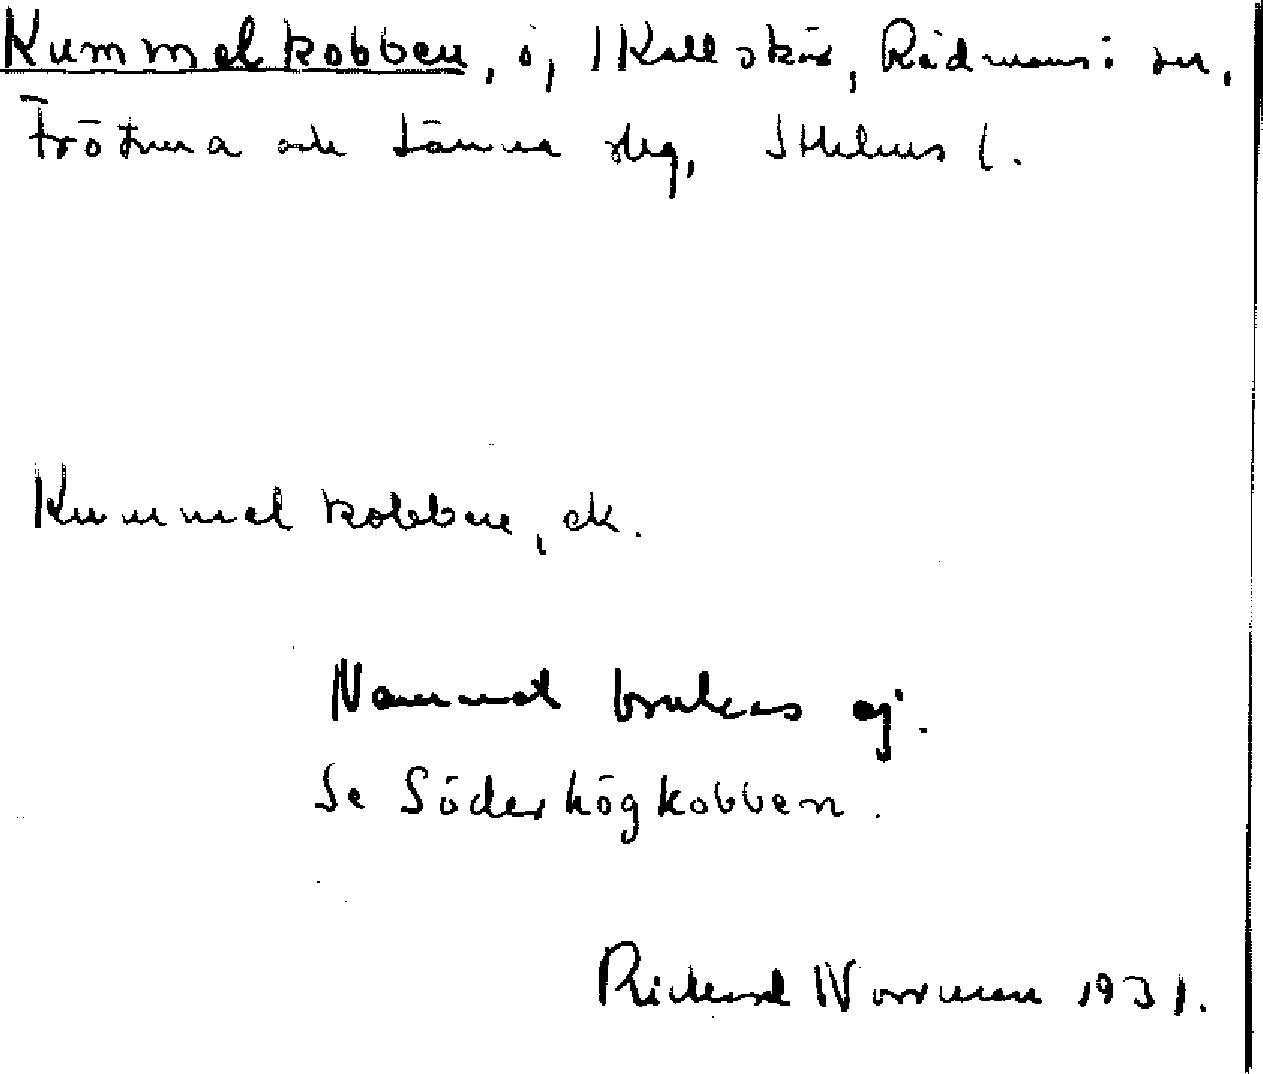 Kummelkobben, ö, 1 Kallskär, Rådmansö sn,
Frötuna och Länna slg, Sthlms l.
Kummelkobben, ek.
Namnet brukas ej.
Se Söderhögkobben.
Rickard Norrman 1931.